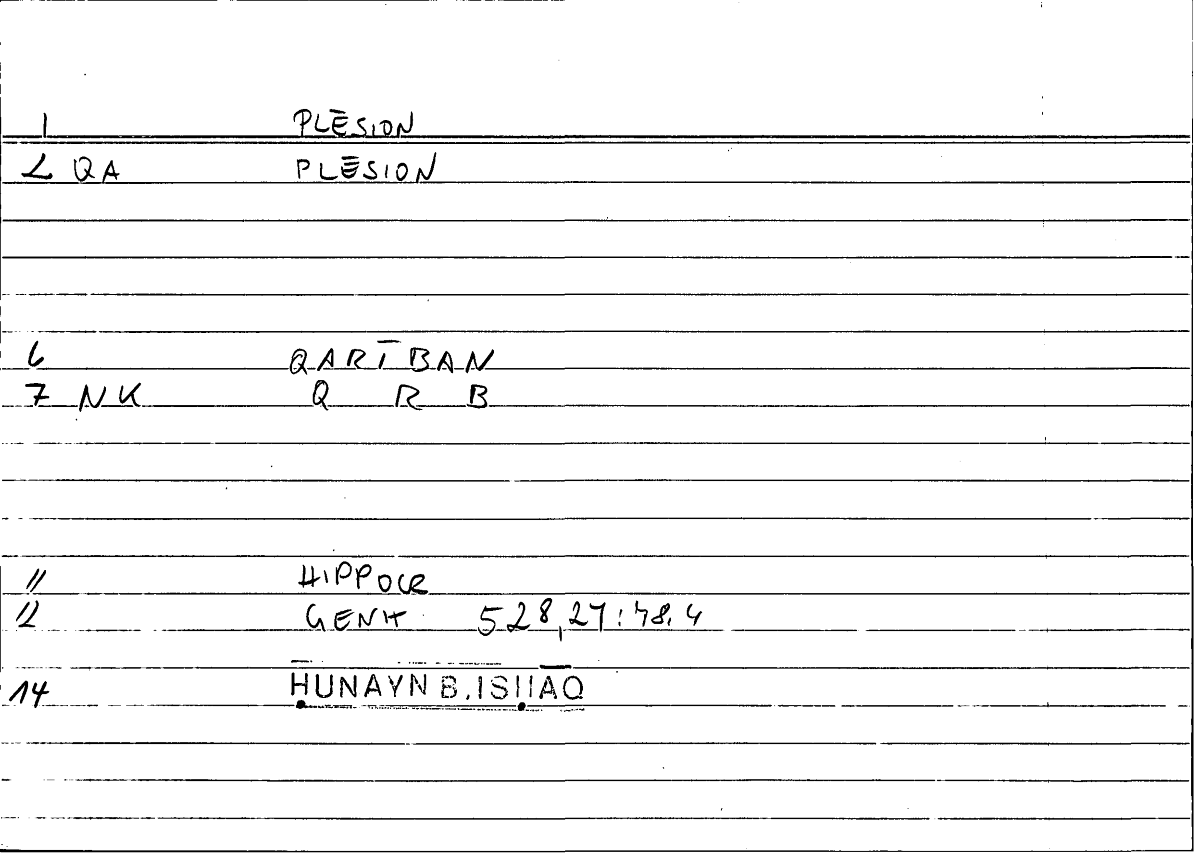 1 PLĒSION
2 QA PLĒSION
6 QARĪBAN
7 NK Q R B
11 HIPPOCR
12 GENIT 528,27:48.4
14 ḤUNAYN B. ISḤĀQ